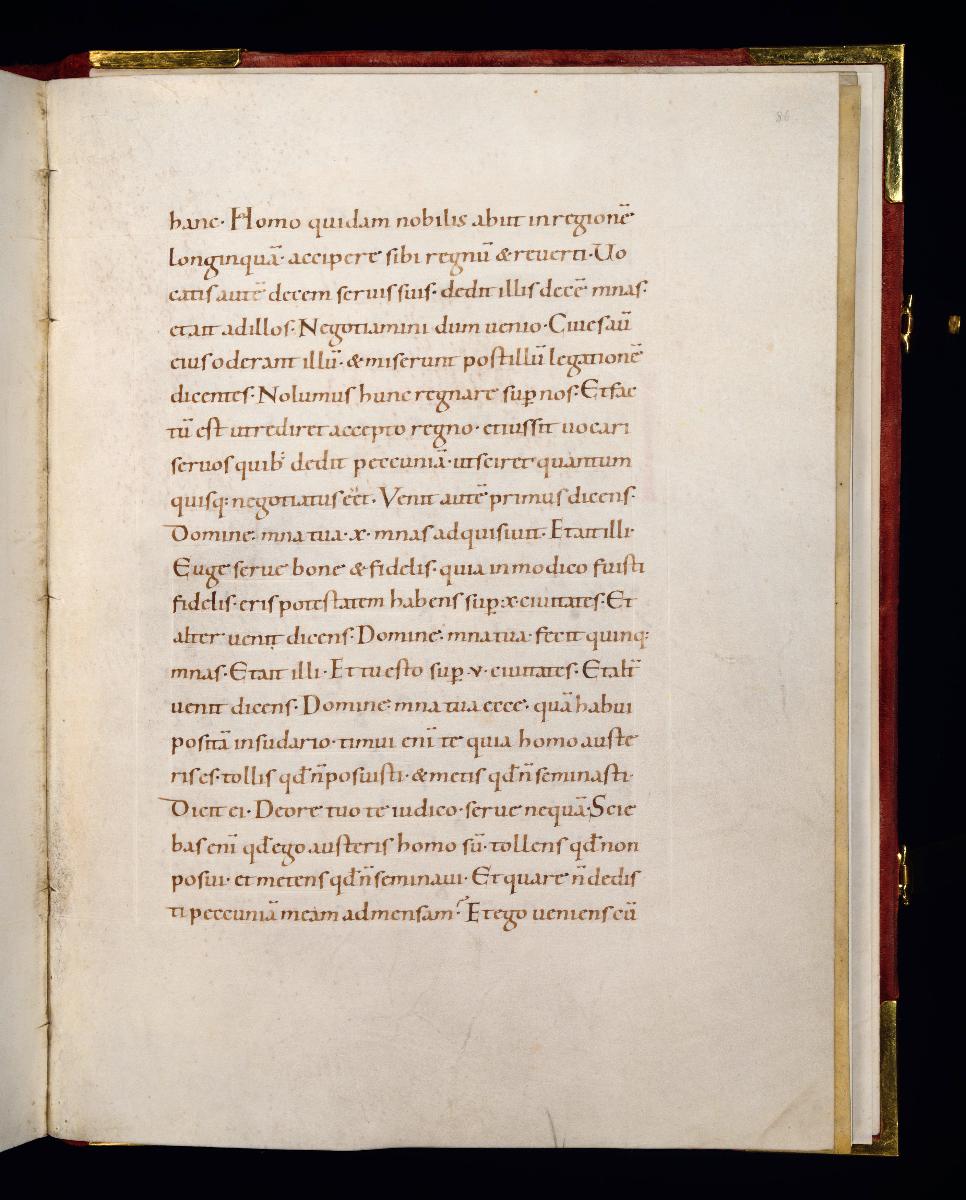 86
hanc· Homo quidam nobilis abiit in regionē
longinquā· accipere sibi regnū & reuerti· Uo
catis autē decem seruis suis· dedit illis decē mnas·
et ait ad illos· Negotiamini dum uenio· Ciues aū
eius oderant illū· & miserunt post illū legationē
dicentes· Nolumus hunc regnare sup nos· Et fac
tū est ut rediret accepto regno· et iussit uocari
seruos quib; dedit peccuniā· ut sciret quantum
quisq; negotiatus eēt· Venit autē primus dicens·
Domine· mna tua ·x· mnas adquisiuit· Et ait illi·
Euge serue bone & fidelis· quia in modico fuisti
fidelis· eris potestatem habens sup ·x· ciuitates· Et
alter uenit dicens· Domine· mna tua fecit quinq;
mnas· Et ait illi· Et tu esto sup ·v· ciuitates· Et alt̄
uenit dicens· Domine· mna tua ecce· quā habui
positā in sudario· timui enī te quia homo auste
ris es· tollis qđ n̄ posuisti· & metis qđ n̄ seminasti·
Dicit ei· De ore tuo te iudico· serue nequā· Scie
bas enī qđ ego austeris homo sū· tollens qđ non
posui· et metens qđ n̄ seminaui· Et quare n̄ dedis
ti peccuniā meam ad mensam? Et ego ueniens cū